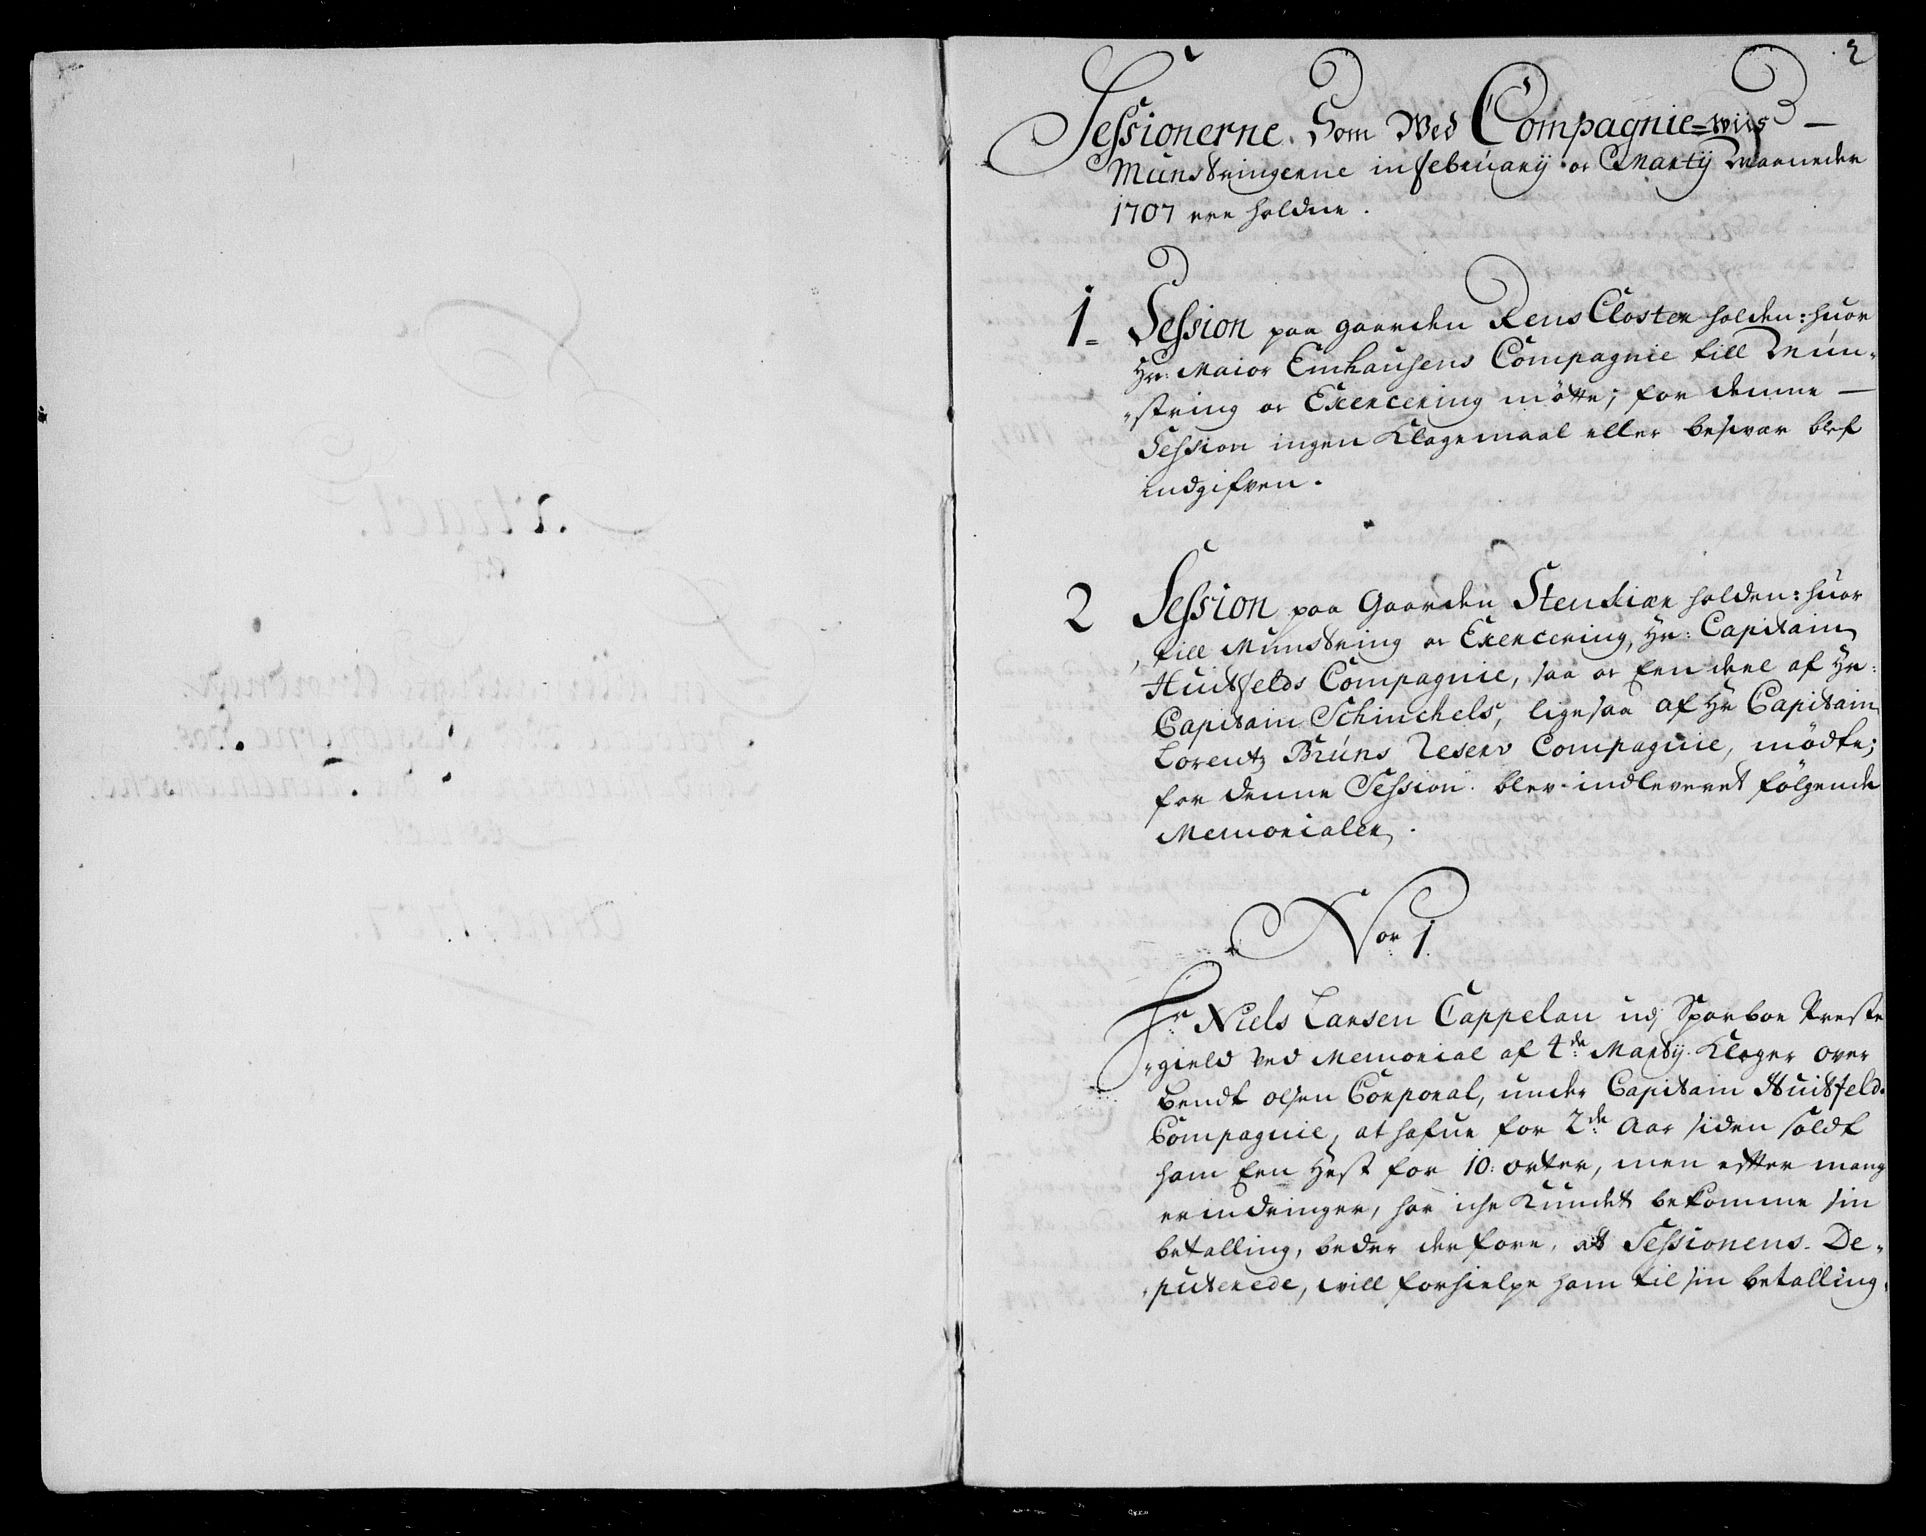 2
Sessionerne. Som Wed Compagnie=wiis –
Munstringerne in februarij oc Martij Maaneder
1707 ere holdne.
1= Session paa gaarden Rens Closter holden: huor
Hr: Maior Emhausens Compagnie till Mün-
-string oc Exercering mötte; for denne –
Session ingen Klagemaal eller besvær blef
indgifven.
2 Session paa Gaarden Stenkiær holden: huor
till Munstring oc Exercering, Hr: Capitain
Huitfelds Compagnie, saa oc Een deel af Hr:
Capitain Schinckels, ligesaa af Hr Capitain
Lorentz Brúns Reserv Compagnie, mödte;
for denne Session. blev indleveret fölgende
Memorialer.
Nor 1.
Hr: Niels Larsen Cappelan udj Sparboe Preste
-gield ved Memorial af 4de Martij. Klager over
Bendt olsen Corporal, under Capitain Huitfeld.
Compagnie, at hafue for 2de Aar siden soldt
ham Een Hest for 10: orter, men efter mang
erindringer, har iche Kundet bekomme sin
betalling, beder derfore, at Sessionens De-
-puterede, will forhielpe ham til sin betalling.